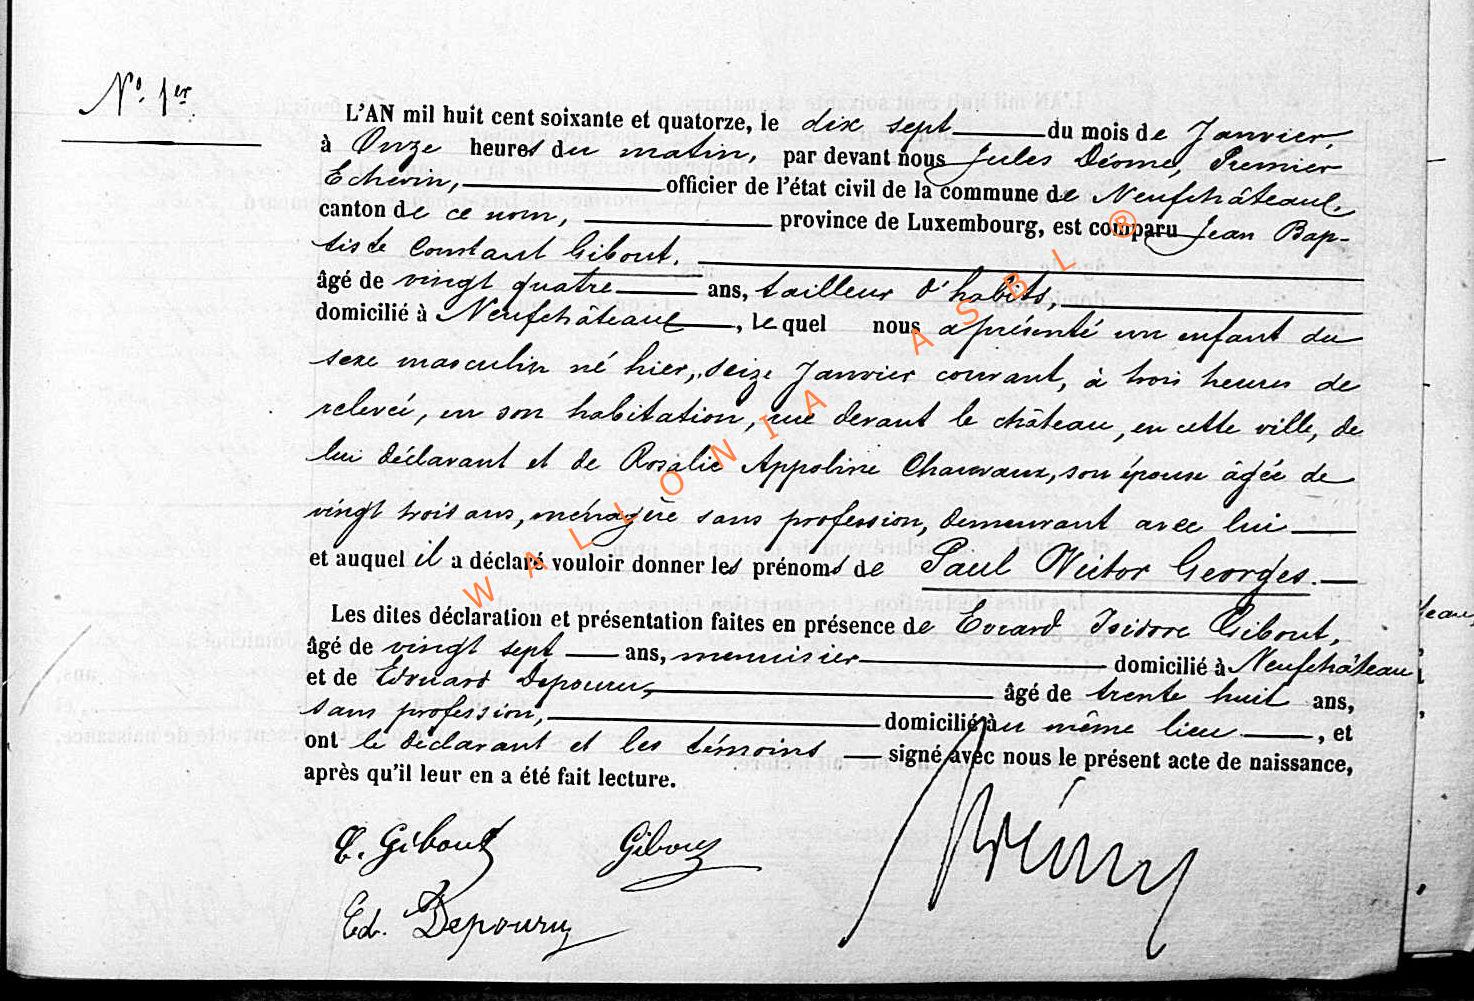 N° 1er
L'AN mil huit cent soixante et quatorze, le dix sept du mois de Janvier,
à Onze heures du matin, par devant nous Jules Déome, Premier
Echevin, officier de l'état civil de la commune de Neufchâteau,
canton de ce nom, province de Luxembourg, est comparu Jean Bap-
tiste Constant Gibout,
âgé de vingt quatre ans, tailleur d'habits,
domicilié à Neufchâteau, lequel nous a présenté un enfant du
sexe masculin né hier, seize Janvier courant, à trois heures de
relevée, en son habitation, rue devant le château, en cette ville, de
lui déclarant et de Rosalie Appoline Chauvaux, son épouse âgée de
vingt trois ans, ménagère sans profession, demeurant avec lui
et auquel il a déclaré vouloir donner les prénoms de Paul Victor Georges.
Les dites déclaration et présentation faites en présence de Evrard Isidore Gibout,
âgé de vingt sept ans, menuisier domicilié à Neufchâteau
et de Edouard Depoury, âgé de trente huit ans,
sans profession, domicilié au même lieu, et
ont le déclarant et les témoins signé avec nous le présent acte de naissance,
après qu'il leur en a été fait lecture.
C. Gibout Gibout
Ed. Depoury
WALLONIA ASBL ®